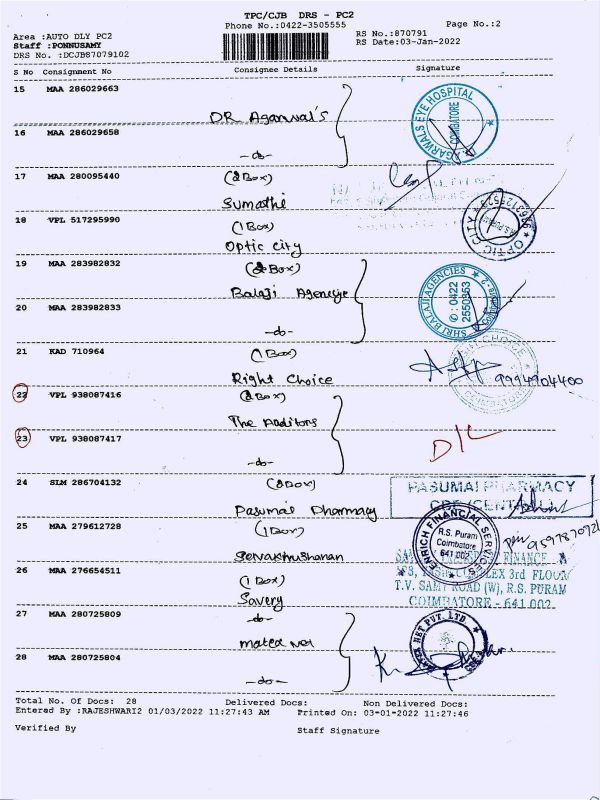 TPC/CJB DRS - PC2
Phone No.:0422-3505555
Page No.:2
Area :AUTO DLY PC2
RS No.:870791
Staff :PONNUSAMY
RS Date:03-Jan-2022
DRS No. :DCJB87079102
S No Consignment No Consignee Details Signature
15 MAA 286029663
DR Agarwal's
AGARWALS EYE HOSPITAL
COIMBATORE
16 MAA 286029658
-do-
17 MAA 280095440 (2 Box)
Sumathi
18 VPL 517295990 (1 Box)
Optic city
OPTIC CITY
19 MAA 283982832 (2 Box)
Balaji Agencije
SHRI BALAJI AGENCIES
✆: 0422
2550353
20 MAA 283982833
-do-
21 KAD 710964 (1 Box)
Right Choice
9994904400
22 VPL 938087416 (2 Box)
The Auditors
23 VPL 938087417
-do-
D/L
24 SLM 286704132 (2 Box)
Pasumai Pharmacy
PASUMAI PHARMACY
25 MAA 279612728 (1 Box)
ENRICH FINANCIAL SERVICES
R.S. Puram
Coimbatore
641 002
FINANCE
3rd FLOOR
T.V. SAMY ROAD (W), R.S. PURAM
COIMBATORE - 641 002
26 MAA 276654511 (1 Box)
Savery
27 MAA 280725809
-do-
Matex Net
NET PVT. LTD.
28 MAA 280725804
-do-
Total No. Of Docs: 28 Delivered Docs: Non Delivered Docs:
Entered By :RAJESHWARI2 01/03/2022 11:27:43 AM Printed On: 03-01-2022 11:27:46
Verified By Staff Signature